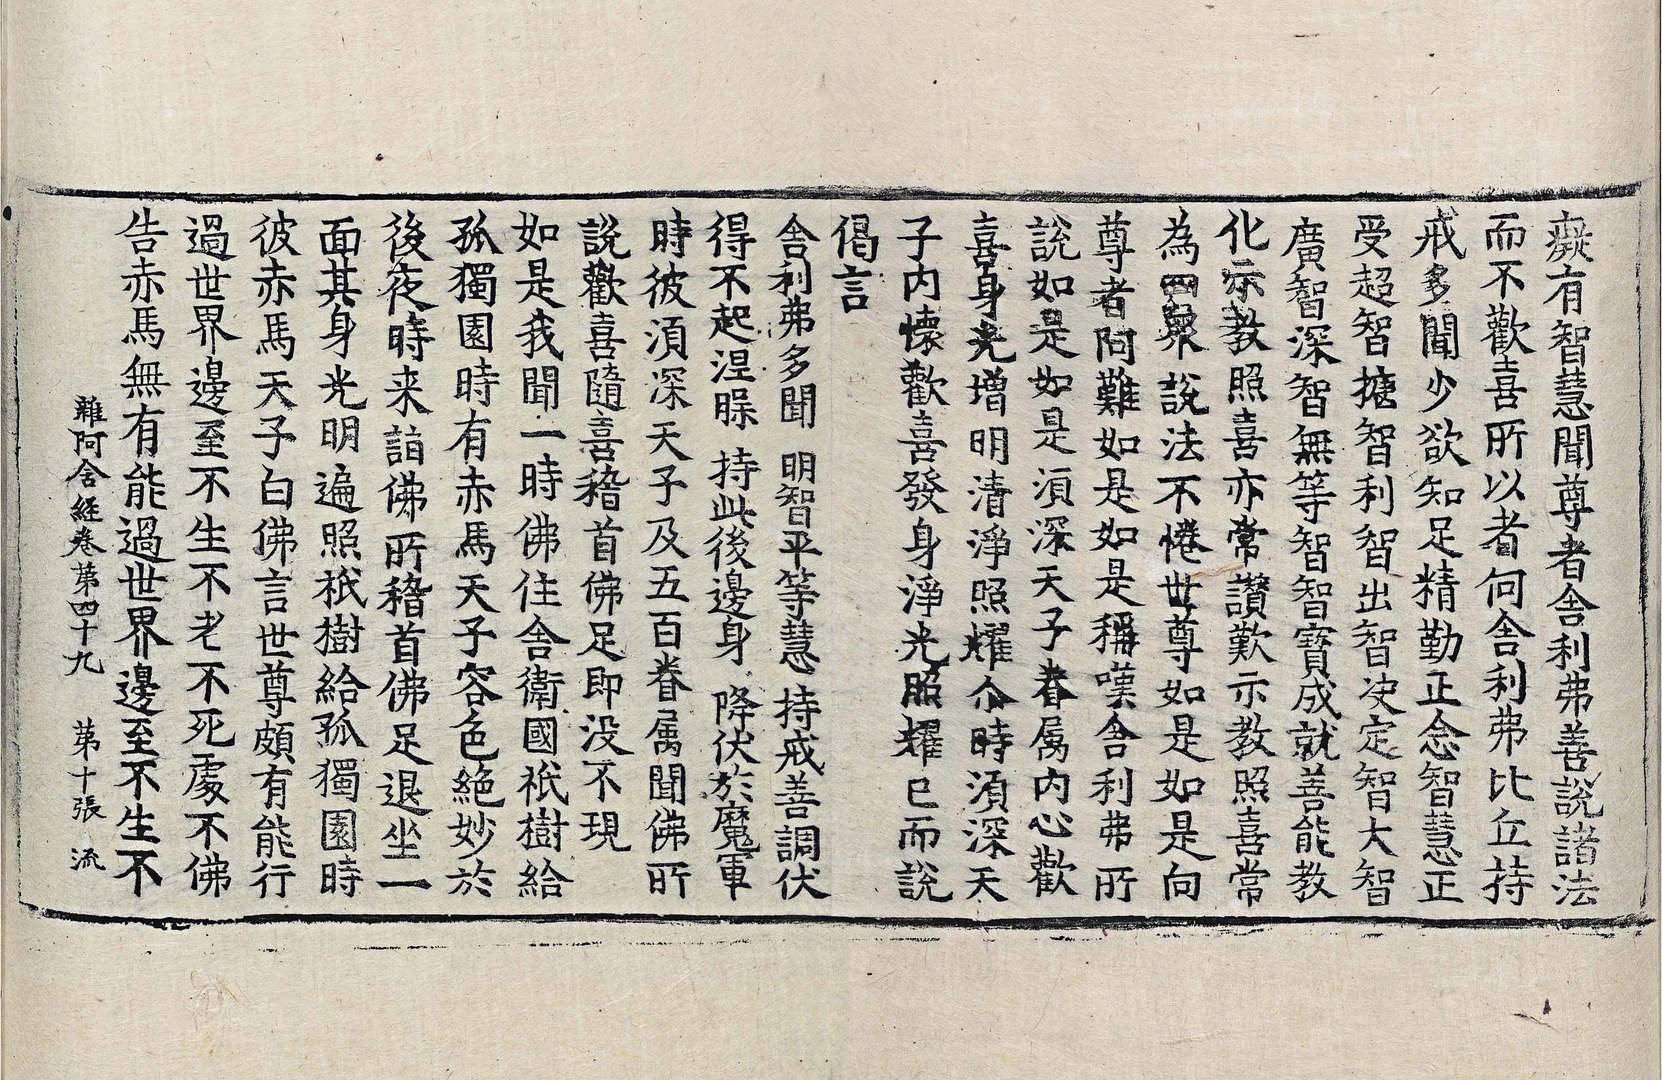 癡有智慧聞尊者舍利弗善說諸法
而不歡喜所以者何舍利弗比丘持
戒多聞少欲知足精勤正念智慧正
受超智揵智利智出智决定智大智
廣智深智無等智智寶成就善能教
化示教照喜亦常讃歎示教照喜常
為四衆說法不惓世尊如是如是向
尊者阿難如是如是稱嘆舍利弗所
說如是如是湏深天子眷属内心歡
喜身光增明清淨照耀尒時湏深天
子内懷歡喜發身淨光照耀已而說
偈言
舍利弗多聞 明智平等慧 持戒善調伏
得不起涅槃 持此後邊身 降伏於魔軍
時彼湏深天子及五百眷属聞佛所
說歡喜隨喜稽首佛足即没不現
如是我聞一時佛住舍衛國祇樹給
孤獨園時有赤馬天子容色絶妙於
後夜時来詣佛所稽首佛足退坐一
面其身光明遍照祇樹給孤獨園時
彼赤馬天子白佛言世尊頗有能行
過世界邊至不生不老不死處不佛
告赤馬無有能過世界邊至不生不
雜阿含經卷第四十九 第十張 流